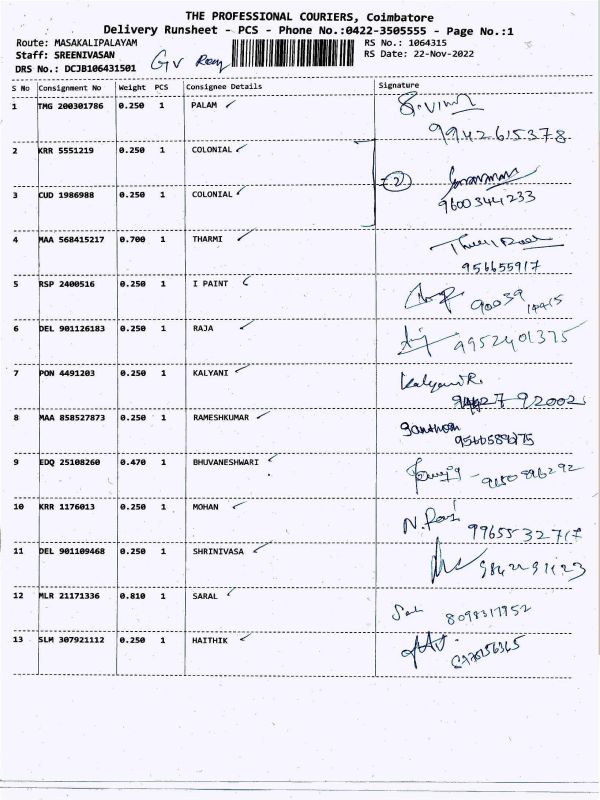 THE PROFESSIONAL COURIERS, Coimbatore
Delivery Runsheet - PCS - Phone No.:0422-3505555 - Page No.:1
Route: MASAKALIPALAYAM RS No.: 1064315
Staff: SREENIVASAN GV RS Date: 22-Nov-2022
DRS No.: DCJB106431501
S No Consignment No Weight PCS Consignee Details Signature
1 TMG 200301786 0.250 1 PALAM
9942615378
2 KRR 5551219 0.250 1 COLONIAL
2
3 CUD 1986988 0.250 1 COLONIAL
9600344233
4 MAA 568415217 0.700 1 THARMI
956655917
5 RSP 2400516 0.250 1 I PAINT
6 DEL 901126183 0.250 1 RAJA 9952401375
7 PON 4491203 0.250 1 KALYANI Kalyani R.
8 MAA 858527873 0.250 1 RAMESHKUMAR
9 EDQ 25108260 0.470 1 BHUVANESHWARI
10 KRR 1176013 0.250 1 MOHAN N. Ravi
9965532717
11 DEL 901109468 0.250 1 SHRINIVASA
12 MLR 21171336 0.810 1 SARAL
8098317952
13 SLM 307921112 0.250 1 HAITHIK